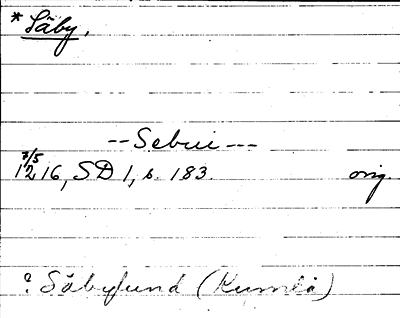 * Säby.
--Sebui---
7/5
1216, SD 1, s. 183. orig.
? Säbylund (Kumla)